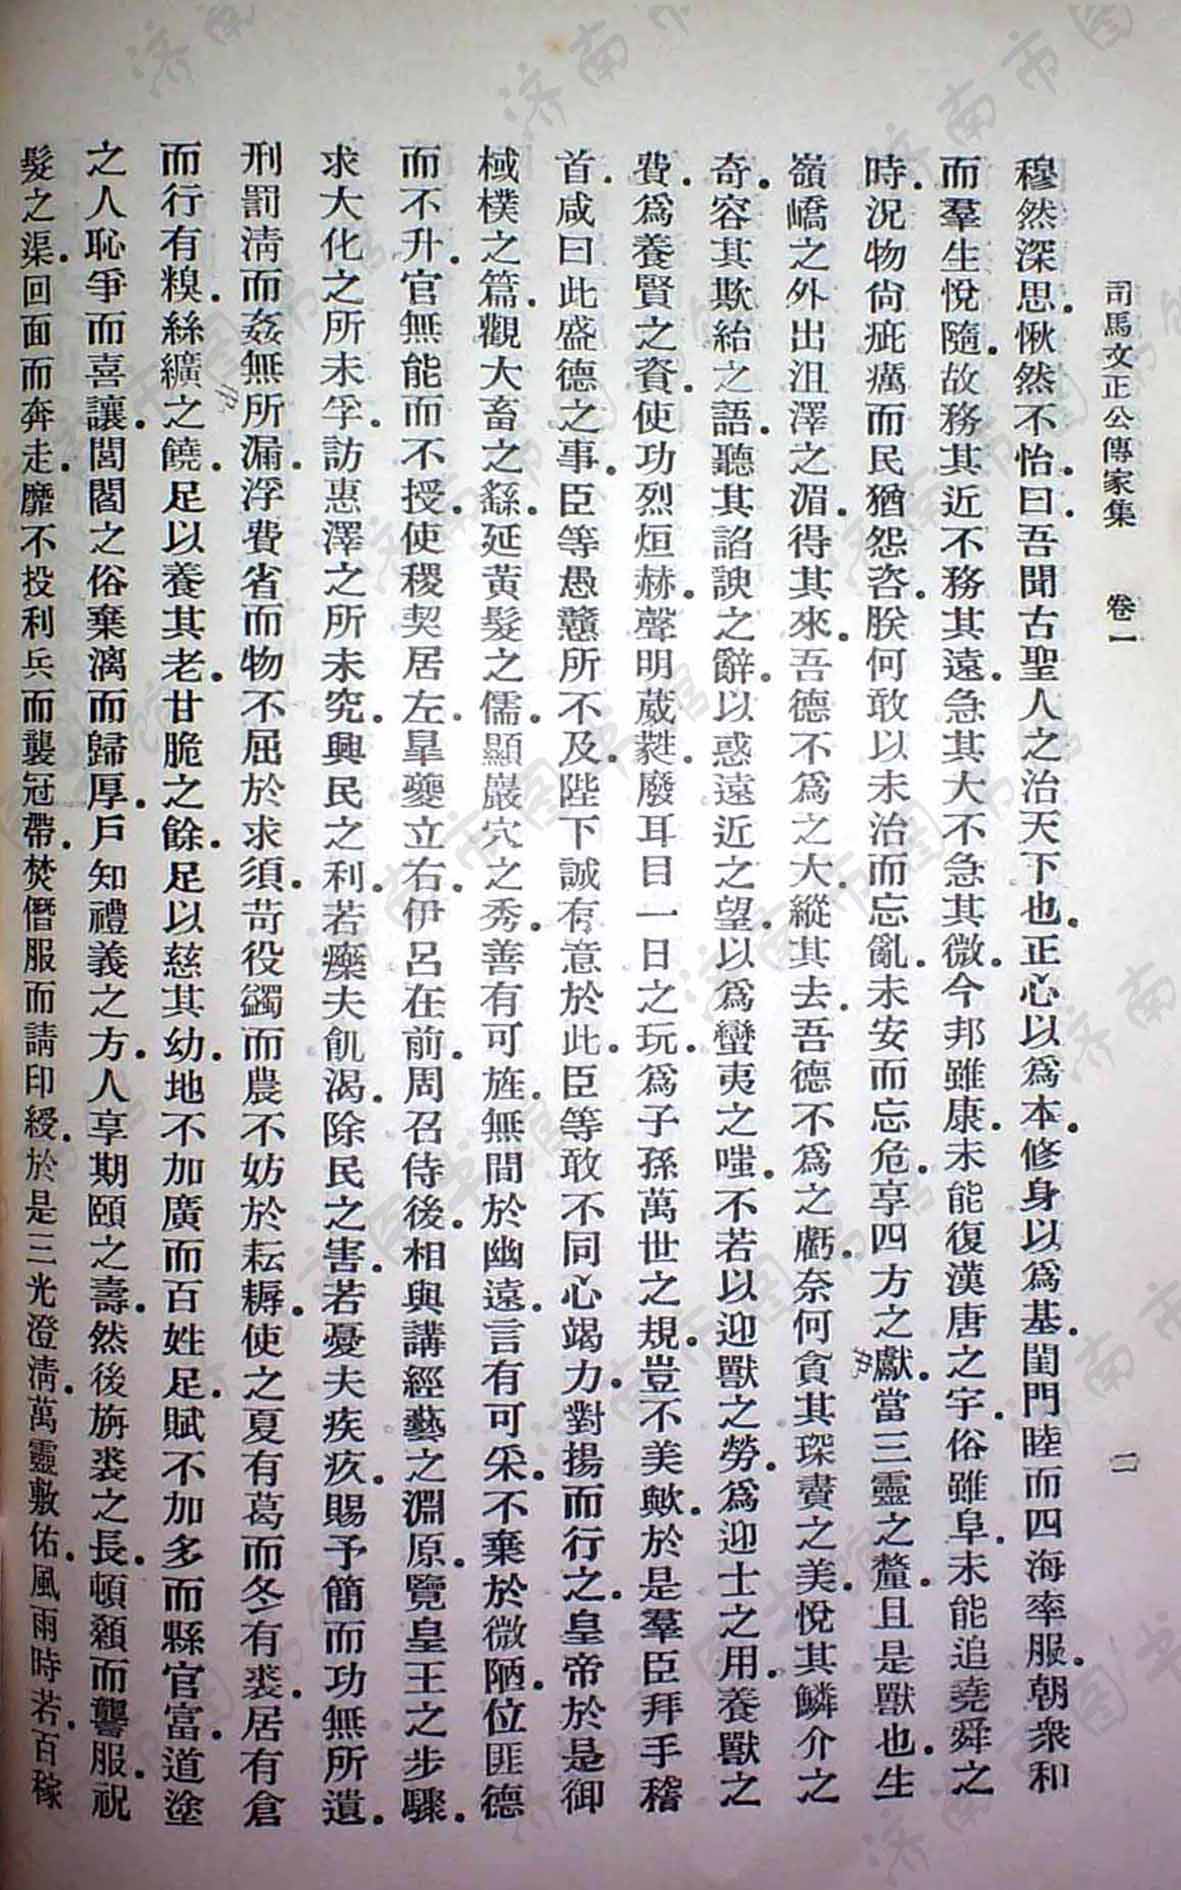 司馬文正公傳家集　卷一　二
穆然深思。愀然不怡。曰。吾聞古聖人之治天下也。正心以爲本。修身以爲基。閨門睦而四海率服。朝衆和
而羣生悅隨。故務其近不務其遠。急其大不急其微。今邦雖康。未能復漢唐之宇。俗雖阜。未能追堯舜之
時。況物尙疵癘而民猶怨咨。朕何敢以未治而忘亂。未安而忘危。享四方之獻。當三靈之釐。且是獸也。生
嶺嶠之外。出沮澤之湄。得其來。吾德不爲之大。縱其去。吾德不爲之虧。奈何貪其琛賮之美。悅其鱗介之
奇。容其欺紿之語。聽其諂諛之辭。以惑遠近之望。以爲蠻夷之嗤。不若以迎獸之勞。爲迎士之用。養獸之
費。爲養賢之資。使功烈烜赫。聲明葳蕤。廢耳目一日之玩。爲子孫萬世之規。豈不美歟。於是羣臣拜手稽
首。咸曰此盛德之事。臣等愚戇所不及。陛下誠有意於此。臣等敢不同心竭力。對揚而行之。皇帝於是御
棫樸之篇。觀大畜之繇。延黃髮之儒。顯巖穴之秀。善有可旌。無間於幽遠。言有可采。不棄於微陋。位匪德
而不升。官無能而不授。使稷契居左。臯夔立右。伊呂在前。周召侍後。相與講經藝之淵原。覽皇王之步驟。
求大化之所未孚。訪惠澤之所未究。興民之利。若癳夫飢渴。除民之害。若憂夫疾疚。賜予簡而功無所遺。
刑罰淸而姦無所漏。浮費省而物不屈於求須。苛役蠲而農不妨於耘耨。使之夏有葛而冬有裘。居有倉
而行有糗。絲纊之饒。足以養其老。甘脆之餘。足以慈其幼。地不加廣而百姓足。賦不加多而縣官富。道塗
之人恥爭而喜讓。閭閻之俗棄漓而歸厚。戶知禮義之方。人享期頤之壽。然後旃裘之長。頓顙而讋服。祝
髮之渠。回面而奔走。靡不投利兵而襲冠帶。焚僭服而請印綬。於是三光澄淸。萬靈敷佑。風雨時若。百稼